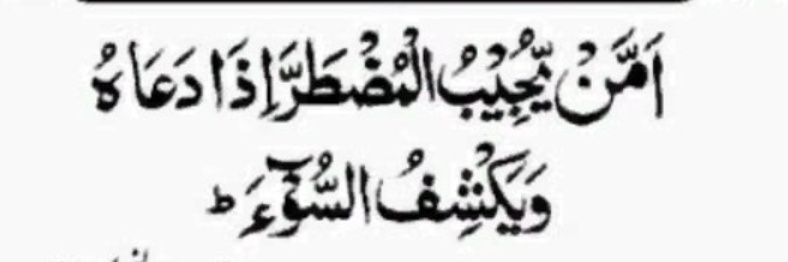 اَمَّنْ يُّجِيْبُ الْمُضْطَرَّ اِذَا دَعَاهُ
وَيَكْشِفُ السُّوْٓءَ ؕ